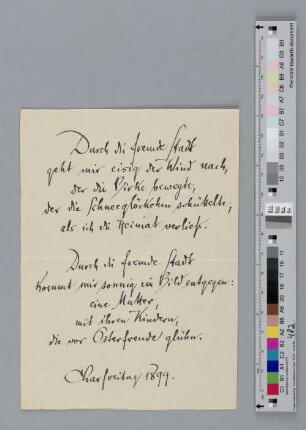 Durch die fremde Stadt
geht mir eisig der Wind nach,
der die Birke bewegte,
der die Schneeglöckchen schüttelte,
als ich die Heimat verließ.
Durch die fremde Stadt
kommt mir sonnig ein Bild entgegen:
eine Mutter,
mit ihren Kindern,
die vor Osterfreude glühn.
Charfreitag 1899.